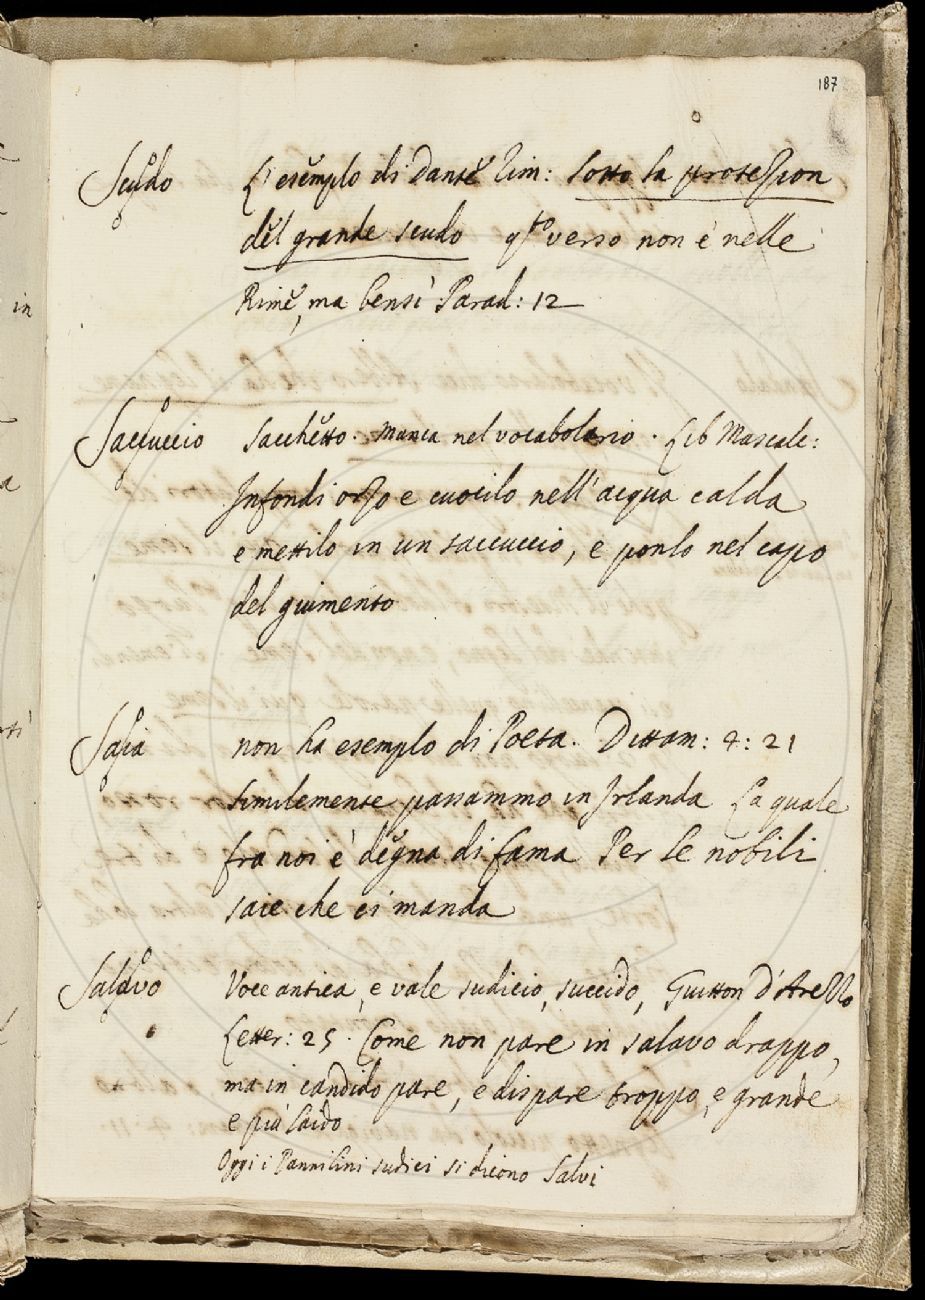 187
Scudo L'esemplo di Dante Rim: sotto la protezion
del grande scudo q.to verso non è nelle
Rime, ma bensì Parad: 12
in
Saccuccio Sacchetto. Manca nel vocabolario. Lib Mascale:
Infondi orzo e cuocilo nell'acqua calda
a
e mettilo in un saccuccio, e ponlo nel capo
del giumento
Saia non ha esemplo di Poeta. Dittam: 4: 21
Similemente passammo in Irlanda La quale
fra noi è degna di fama Per le nobili
saie che ci manda
Salavo Voce antica, e vale sudicio, succido, Guitton d'Arezzo
Letter: 25. Come non pare in salavo drappo,
ma in candido pare, e dispare troppo, e grande
e più laido
Oggi i Pannilini sudici si dicono Salvi